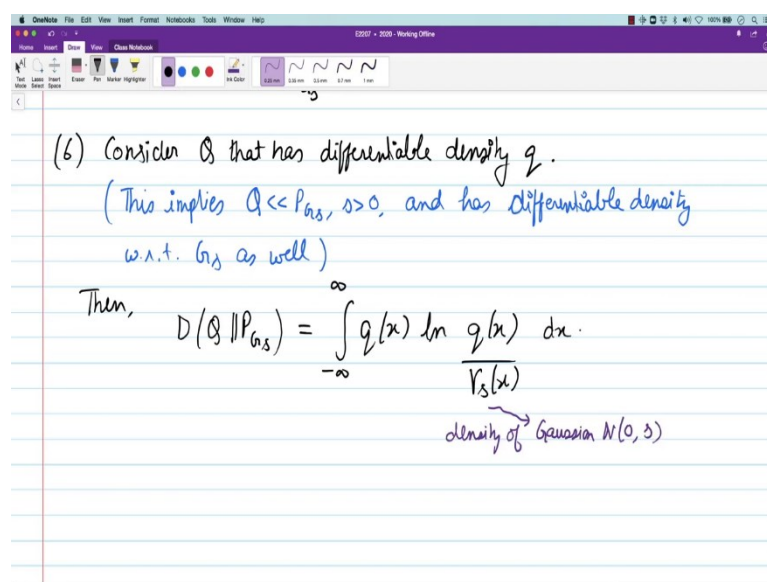 OneNote File Edit View Insert Format Notebooks Tools Window Help 100%
E2207 • 2020 - Working Offline
Home Insert Draw View Class Notebook
Text Mode Lasso Select Insert Space Eraser Pen Marker Highlighter Ink Color 0.25 mm 0.35 mm 0.5 mm 0.7 mm 1 mm
(6) Consider Q that has differentiable density q.
(This implies Q << P_{G_s}, s>0, and has differentiable density
w.r.t. G_s as well)
Then,
D(Q || P_{G_s}) = ∫_{-∞}^{∞} q(x) ln q(x)/γ_s(x) dx.
density of Gaussian N(0, s)